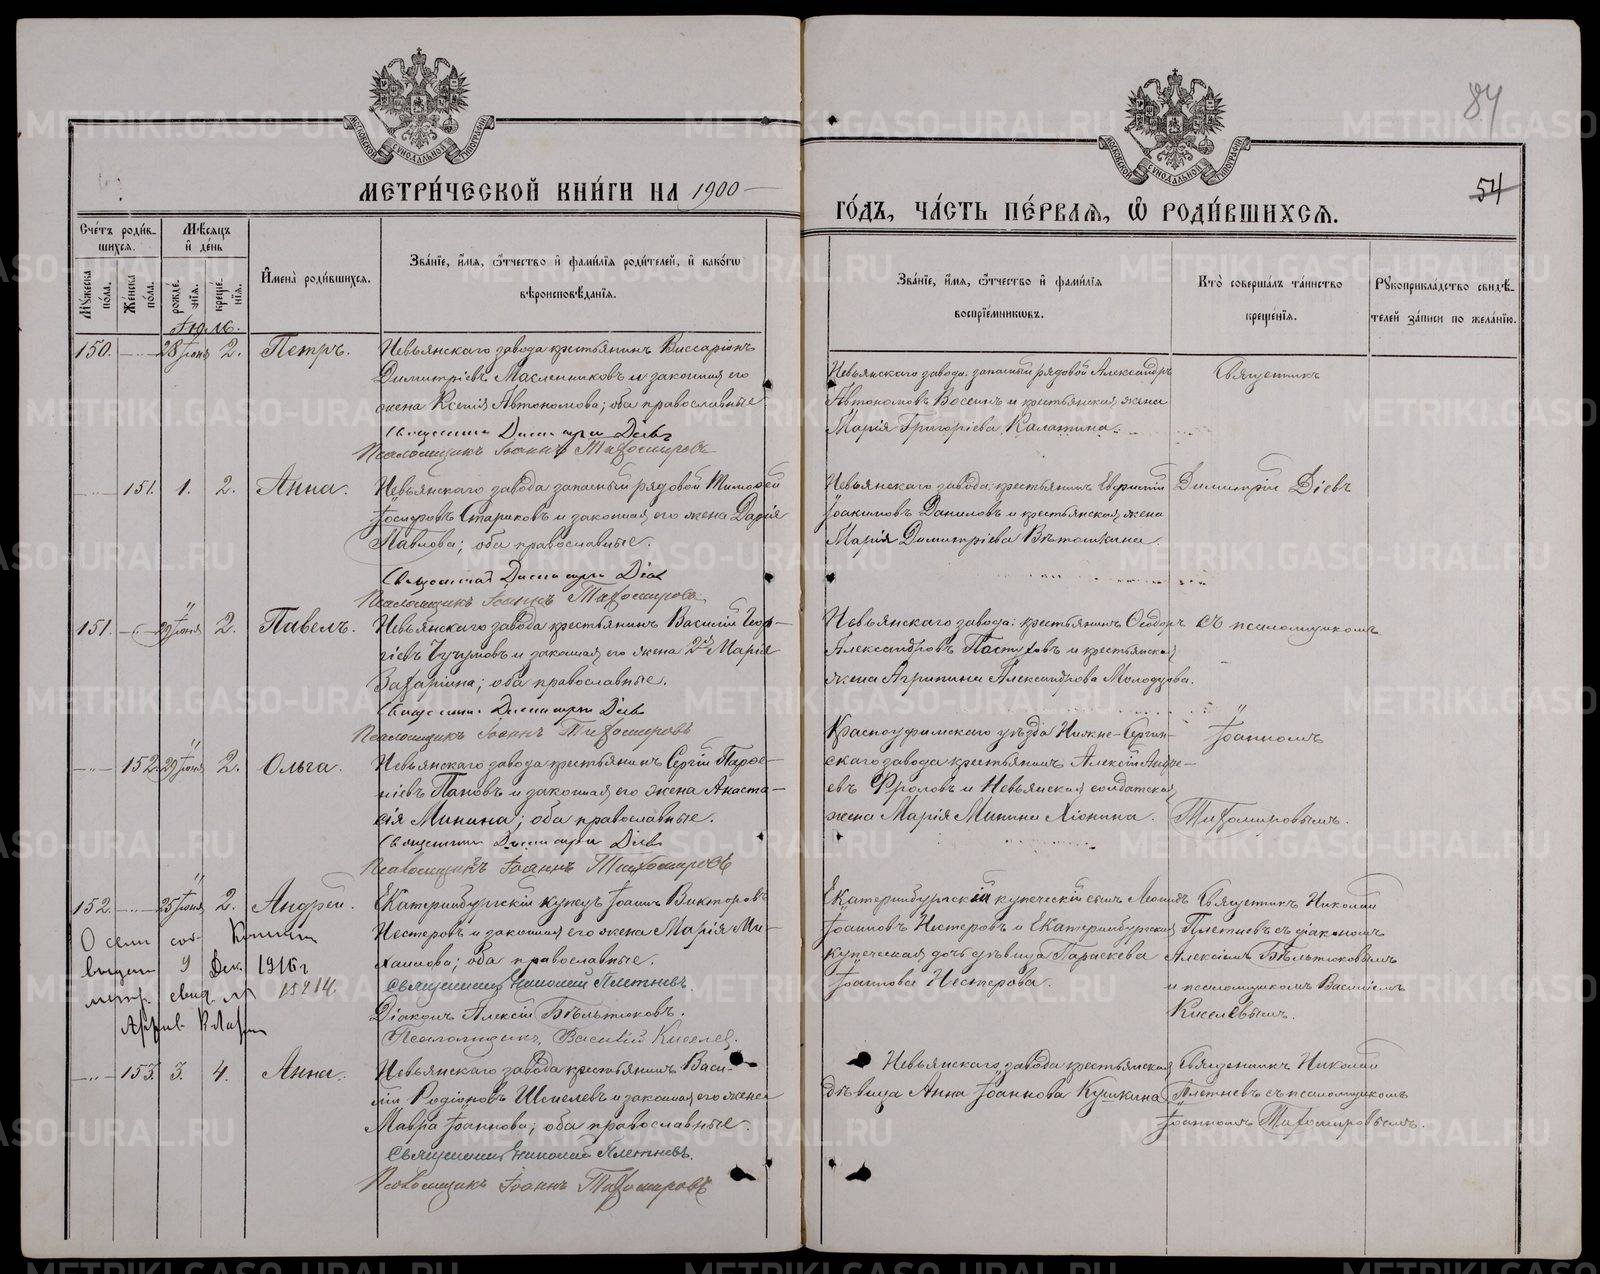 84
54
МЕТРИ́ЧЕСКОЙ КНИ́ГИ НА 1900
ГО́ДЪ, ЧА́СТЬ ПЕ́РВАѦ, Ѡ҆ РОДИ́ВШИХСѦ.
МОСКОВСКОЙ СѴНОДАЛЬНОЙ ТИПОГРАФІИ
МОСКОВСКОЙ СѴНОДАЛЬНОЙ ТИПОГРАФІИ
Сче́тъ роди́вшихся.
Мѣ́сяцъ и҆ де́нь
Мꙋ́жеска по́ла.
Же́нска по́ла.
рожде́нїѧ.
креще́нїѧ.
И҆мена̀ роди́вшихся.
Зва́нїе, и҆́мя, ѻ҆́тчество и҆ фами́лїя роди́телей, и҆ како́гѡ
вѣроисповѣ́данїя.
Зва́нїе, и҆́мя, ѻ҆́тчество и҆ фами́лїя
воспрїе́мникѡвъ.
Кто̀ соверша́лъ та́инство
креще́нїя.
Рꙋкоприкла́дство свидѣ́телей за́писи по жела́нїю.
Іюль.
150. 28 Іюня 2. Петръ.
Невьянскаго завода крестьянинъ Виссаріонъ
Димитріевъ Масленниковъ и законная его
жена Ксенія Автономова; оба православные
Священникъ Димитрій Діевъ
Псаломщикъ Іоаннъ Тихомировъ
Невьянскаго завода: запасный рядовой Александръ
Автономовъ Восенъ и крестьянская жена
Марія Григоріева Калашина.
Священникъ
151. 1. 2. Анна.
Невьянскаго завода запасный рядовой Тимофей
Іосифовъ Стариковъ и законная его жена Дарія
Павлова; оба православные.
Священникъ Димитрій Діевъ
Псаломщикъ Іоаннъ Тихомировъ
Невьянскаго завода: крестьянинъ Евфимій
Іоакимовъ Даниловъ и крестьянская жена
Марія Димитріева Вѣтошкина
Димитрій Діевъ
151. 29 Іюня 2. Павелъ.
Невьянскаго завода крестьянинъ Василій Геор-
гіевъ и законная его жена 2я Марія
Захаріина; оба православные.
Священникъ Димитрій Діевъ
Псаломщикъ Іоаннъ Тихомировъ
Невьянскаго завода: крестьянинъ Ѳеодоръ
Александровъ Пастуховъ и крестьянская
жена Агрипина Александрова Молодцова.
съ псаломщикомъ
152. 29 Іюня 2. Ольга.
Невьянскаго завода крестьянинъ Сергій
Поповъ и законная его жена Анаста-
сія Минина; оба православные.
Священникъ Димитрій Діевъ
Псаломщикъ Іоаннъ Тихомировъ
Красноуфимскаго уѣзда Нижне-Сергин-
скаго завода крестьянинъ Алексій Андре-
евъ Фроловъ и Невьянская солдатская
жена Марія Минина Ліонина.
Іоанномъ
Тихомировымъ.
152. 25 Іюня 2. Андрей.
Екатеринбургскій купецъ Іоаннъ Викторовъ
Нестеровъ и законная его жена Марія Ми-
хаилова; оба православные.
Священникъ Николай Плетневъ.
Діаконъ Алексій Бѣльтюковъ.
Псаломщикъ Василій Киселев.
выдан 9 Дек. 1916 г
метр. свид. № 15214.
Екатеринбургскій купеческій сынъ Леонидъ
Іоанновъ Нестеровъ и Екатеринбургская
купеческая дочь дѣвица Параскева
Іоаннова Нестерова.
Священникъ Николай
Плетневъ съ діакономъ
Алексіемъ Бѣльтюковымъ
и псаломщикомъ Василіемъ
Киселевымъ.
153. 3. 4. Анна.
Невьянскаго завода крестьянинъ Васи-
лій Родіоновъ Шмелевъ и законная его жена
Мавра Іоаннова; оба православные.
Священникъ Николай Плетневъ.
Псаломщикъ Іоаннъ Тихомировъ
Невьянскаго завода крестьянская
дѣвица Анна Іоаннова Кушкина
Священникъ Николай
Плетневъ съ псаломщикомъ
Іоанномъ Тихомировымъ.
METRIKI.GASO-URAL.RU